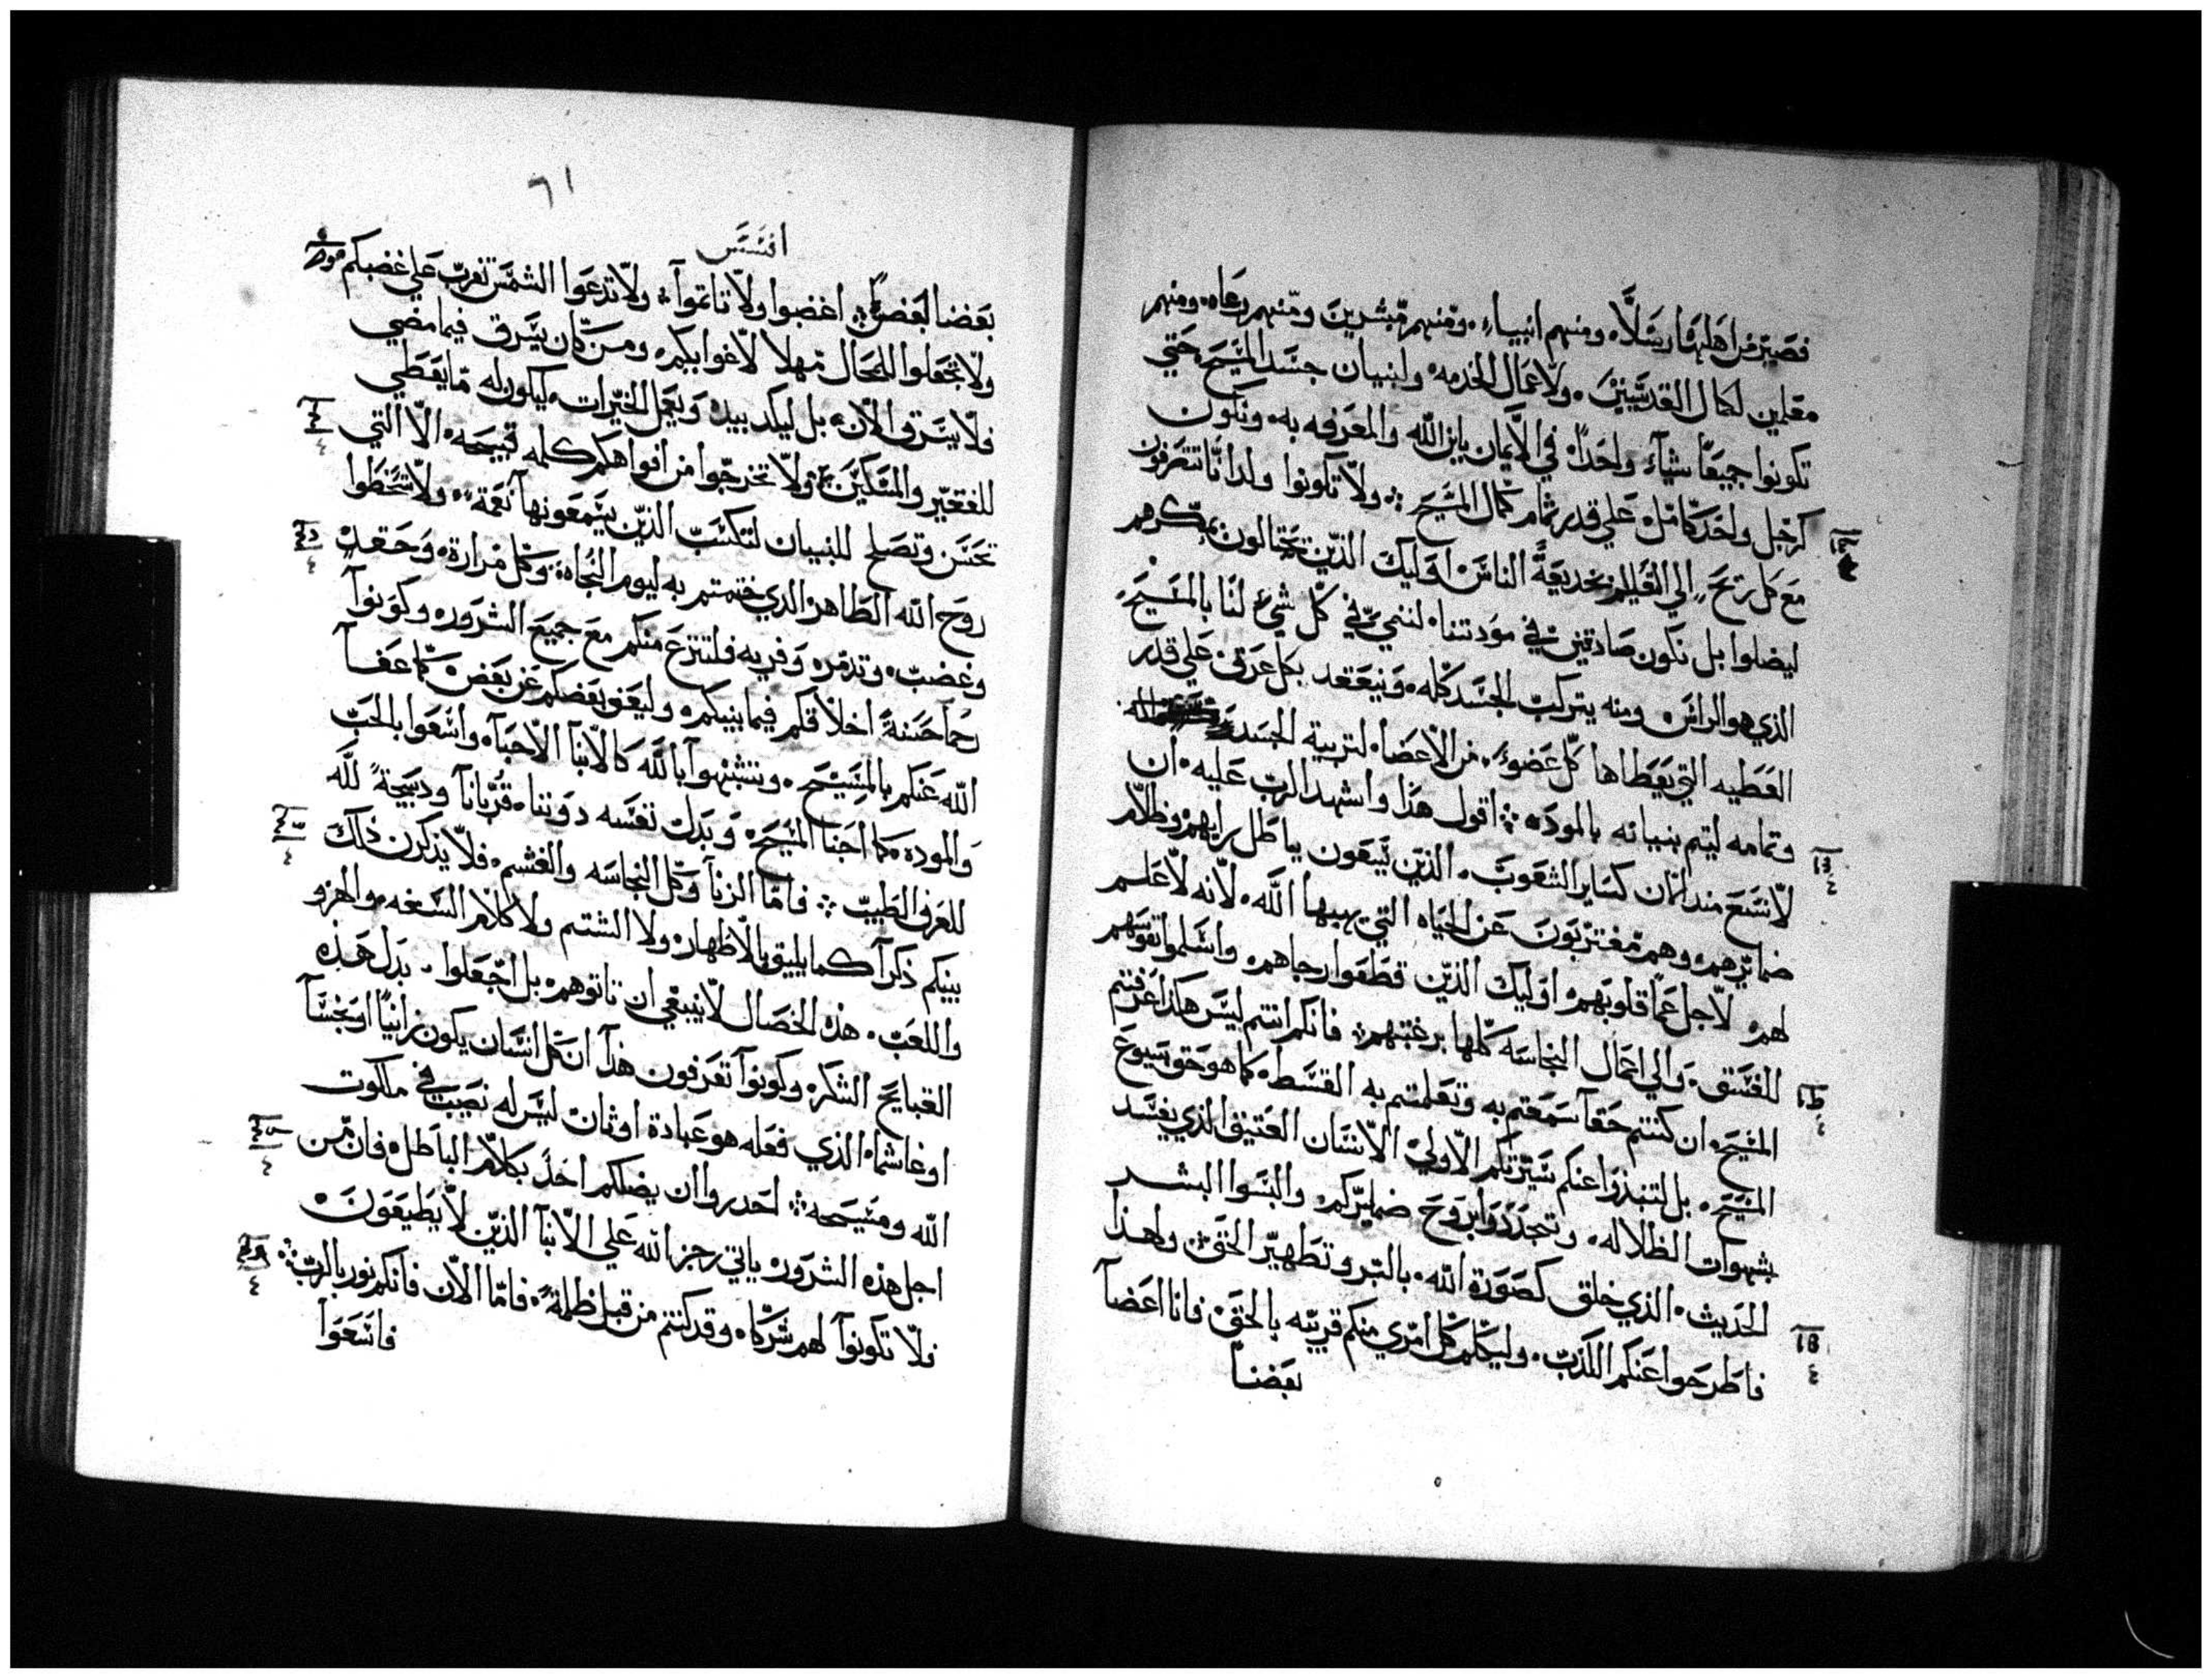 فصير من اهلها رسلاً ومنهم انبياء ومنهم مبشرين ومنهم رعاه ومنهم
معلمين لكمال القديسين ولاعمال الخدمه ولبنيان جسد المسيح حتي
تكونوا جميعاً شياء واحداً في الايمان بابن الله والمعرفه به ونكون
كرجل واحد كامل علي قدر تمام كمال المسيح ولا تكونوا ولداناً تتصرفون
مع كل ريح الي القيلم بخديعة الناس اوليك الذين يحتالون بمكرهم
ليضلوا بل نكون صادقين في مودتنا لننمي في كل شيء لنا بالمسيح
الذي هو الراس ومنه يتركب الجسد كله وينعقد بكل عرق علي قدر
العطيه التي يعطاها كل عضو من الاعضا لتربية الجسد
وتمامه ليتم بنيانه بالموده اقول هذا واشهد الرب عليه ان
لا نسع منذ الان كساير الشعوب الذين يتبعون باطل رايهم وظلام
ضمايرهم وهم مغتربون عن الحياه التي يهبها الله لانه لا علم
لهم لاجل عما قلوبهم اوليك الذين قطعوا رجاهم واسلموا نفوسهم
للفسق والي اعمال النجاسه كلها برغبتهم فانكم انتم ليس هكذا عرفتم
المسيح ان كنتم حقاً سمعتم به وتعلمتم به القسط كما هو حق يسوع
المسيح بل لتنبذوا عنكم سيرتكم الاولي الانسان العتيق الذي يفسد
بشهوات الظلاله وتجددوا بروح ضمايركم والبسوا البشر
الحديث الذي خلق كصورة الله بالبر وتطهير الحق ولهذا
فاطرحوا عنكم الكذب وليكلم كل امري منكم قريبه بالحق فانا اعضآ
بعضنا
٦١
افسس
بعضا لبعض اغضبوا ولا تاتموآ ولا تدعوا الشمس تغرب علي غضبكم
ولا تجعلوا للمحال مهلا لاغوايكم ومن كان يسرق فيما مضي
فلا يسرق الان بل ليكد بيده ويعمل الخيرات ليكون له ما يعطي
للفقير والمسكين ولا تخرجوا من افواهكم كلمه قبيحه الا التي
تحسن وتصلح للبنيان لتكسب الذين يسمعونها نعمة ولا تسخطوا
روح الله الطاهر الذي ختمتم به ليوم النجاه وكل مرارة وحقد
وغضب وتدمر وفريه فلتنزع منكم مع جميع الشروره وكونوآ
رحمآ حسنةً اخلاقكم فيما بينكم وليعف بعضكم عن بعض كما عفآ
الله عنكم بالمسيح وتشبهوآ بالله كالابنآ الاحبآ واسعوا بالحب
والموده كما احبنا المسيح وبدل نفسه دوننا قرباناً ودبيحةً لله
للعرف الطيب فاما الزنآ وكل النجاسه والغشم فلا يذكرن ذلك
بينكم ذكراً كما يليق بالاظهار ولا الشتم ولا كلام السفه والهزو
واللعب هذه الخصال لا ينبغي ان تاتوهم بل اجعلوا بدل هذه
القبايح الشكر وكونوآ تعرفون هذآ ان كل انسان يكون زانياً او نجساً
او غاشماً الذي فعله هو عبادة اوثان ليس له نصيب في ملكوت
الله ومسيحه احدروا ان يضلكم احدٌ بكلام الباطل فان من
اجل هذه الشروره ياتي رجز الله علي الابنآ الذين لا يطيعون
فلا تكونوآ لهم شركاء وقد كنتم من قبل ظلمةً فاما الان فانكم نور بالرب
فاسعوا